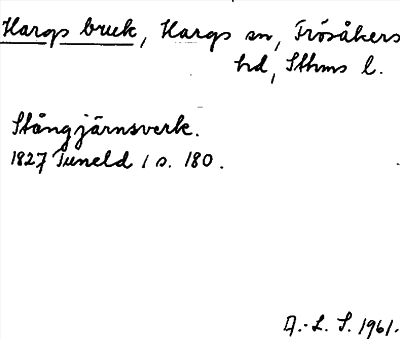 Hargs bruk, Hargs sn, Frösåkers
hd, Sthms l.
Stångjärnsverk.
1827 Tuneld 1 s. 180.
A.-L. S. 1961.